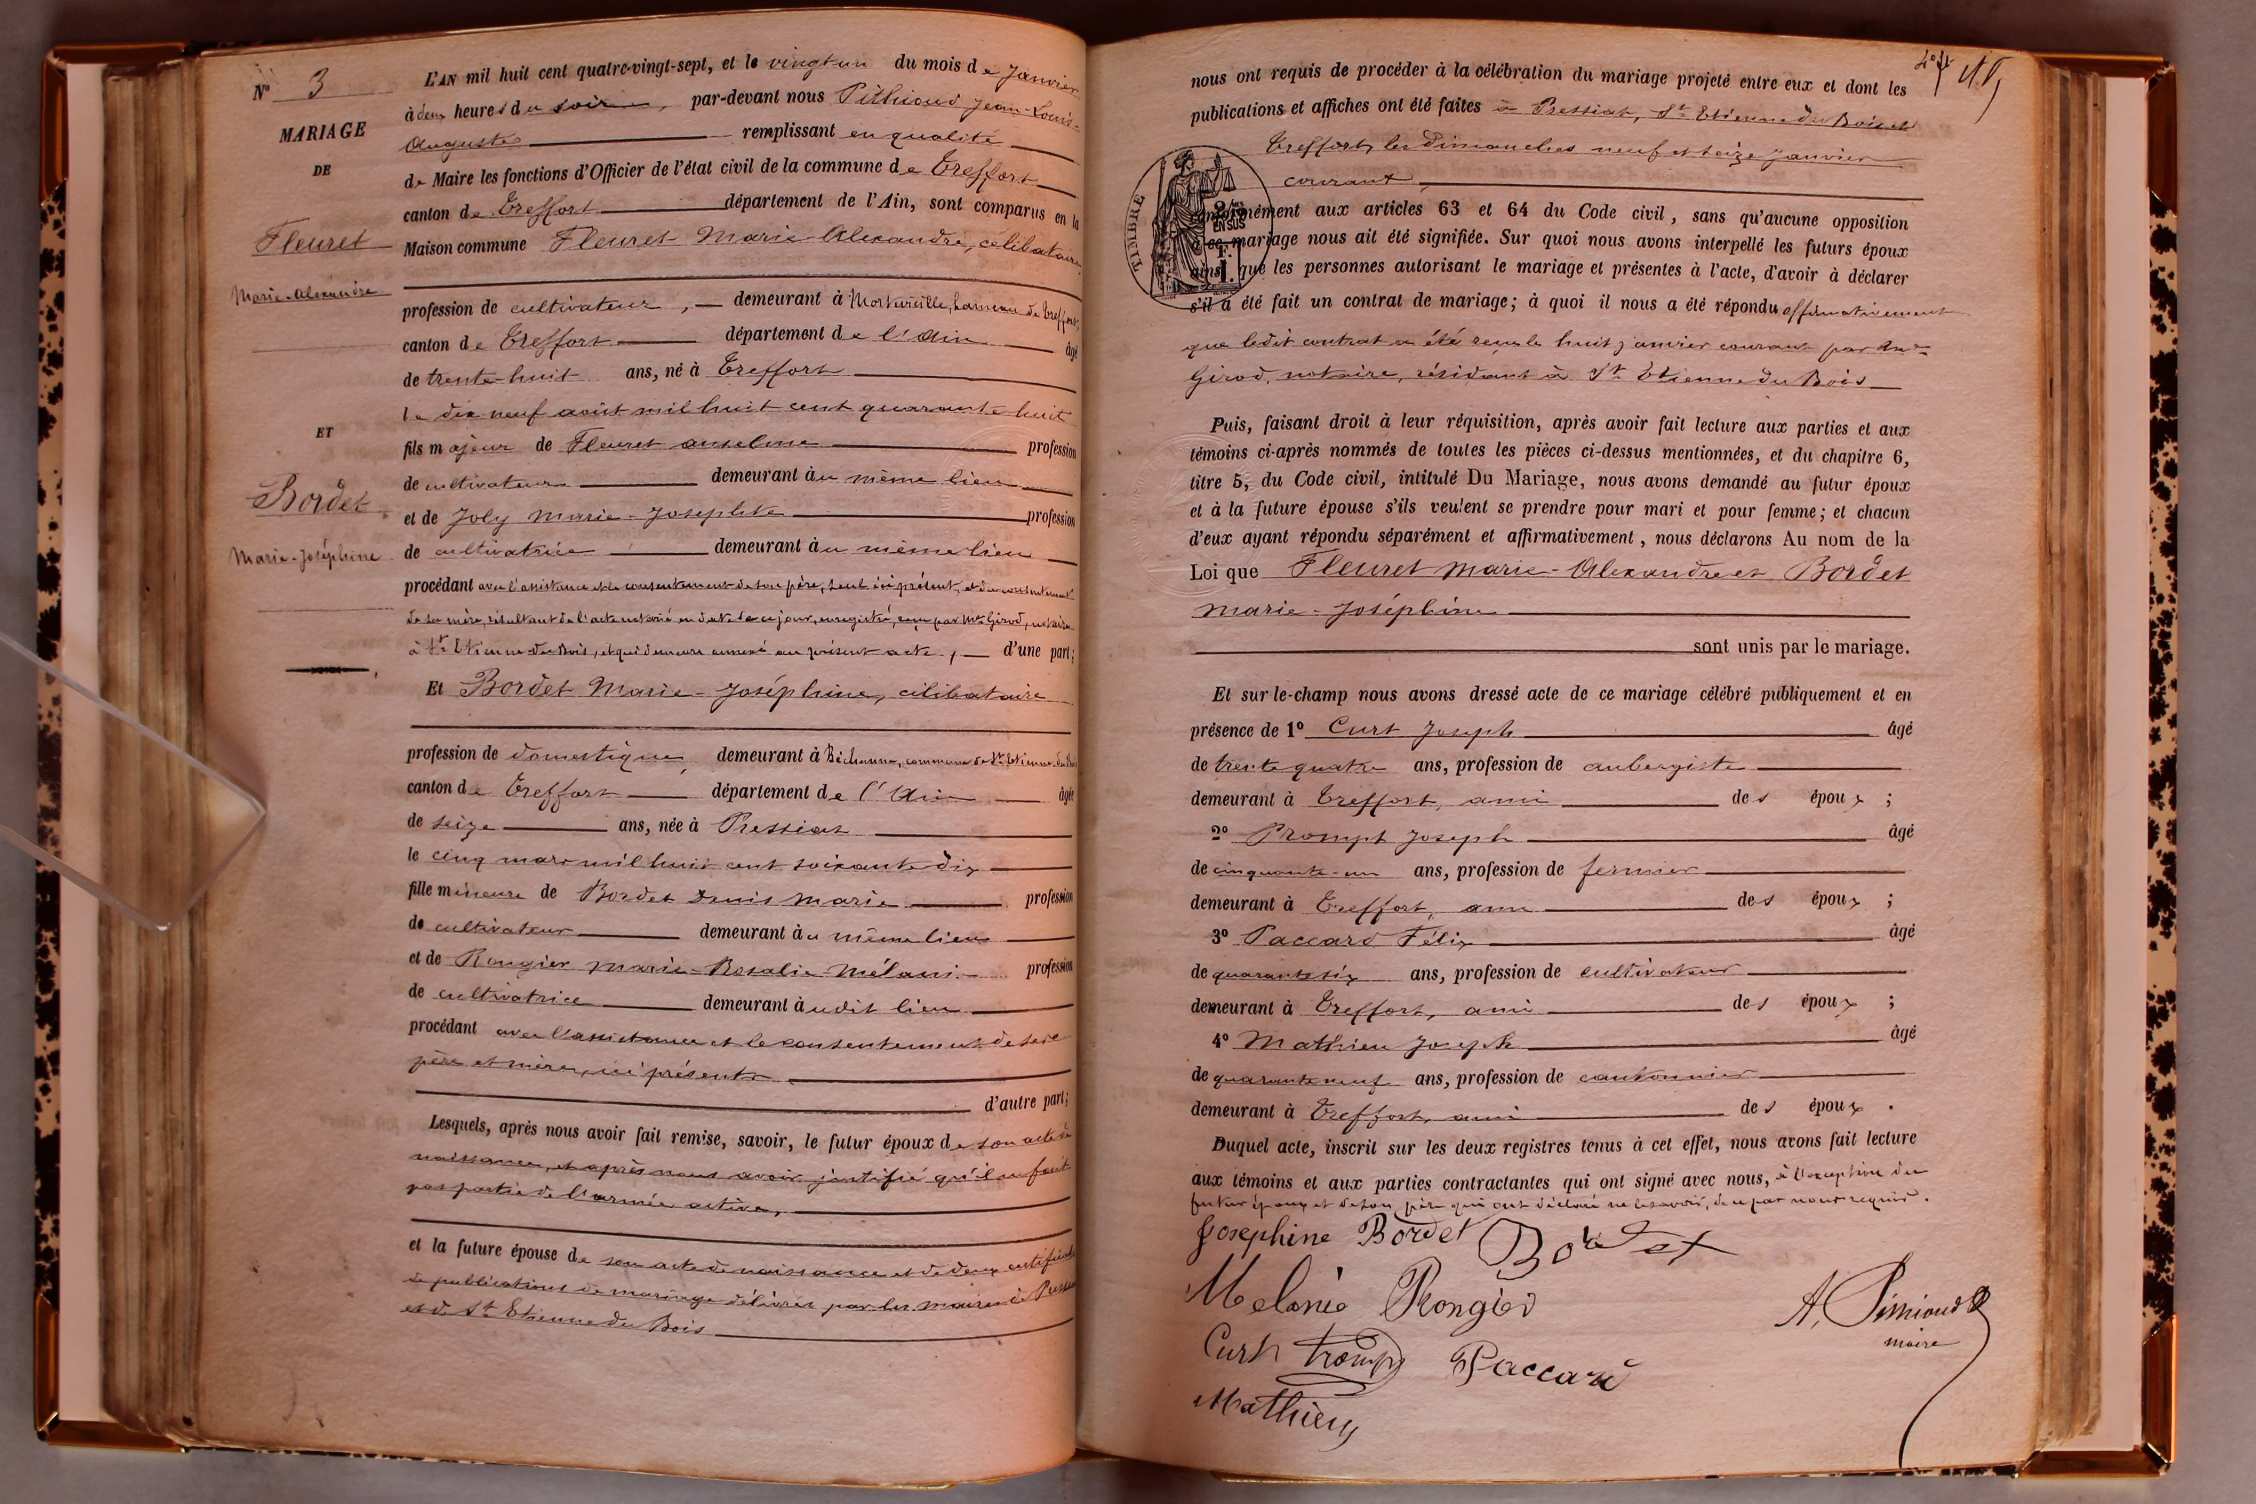 N° 3
MARIAGE
DE
Fleuret
Marie-Alexandre
ET
Bordet
Marie-Joséphine
L'AN mil huit cent quatre-vingt-sept, et le vingt-un du mois de Janvier
à deux heures du soir, par-devant nous Pithioud Jean-Louis-
Auguste remplissant en qualité
de Maire les fonctions d'Officier de l'état civil de la commune de Treffort
canton de Treffort département de l'Ain, sont comparus en la
Maison commune Fleuret Marie-Alexandre, célibataire,
profession de cultivateur, demeurant à hameau de Treffort,
canton de Treffort département de l'Ain âgé
de trente-huit ans, né à Treffort
le dix neuf août mil huit cent quarante huit
fils majeur de Fleuret anselme profession
de cultivateur demeurant au même lieu
et de Joly Marie-Josephte profession
de cultivatrice demeurant au même lieu
procédant avec l'assistance et le consentement de son père, seul ici présent, et du consentement
de sa mère, résultant de l'acte notarié en date de ce jour, enregistré, reçu par Me Girod, notaire
à St Etienne-du-Bois, et qui demeure annexé au présent acte, d'une part;
Et Bordet Marie-Joséphine, célibataire
profession de domestique, demeurant à Béchanne, commune de St Etienne-du-Bois
canton de Treffort département de l'Ain âgée
de seize ans, née à Pressiat
le cinq mars mil huit cent soixante dix
fille mineure de Bordet Denis Marie profession
de cultivateur demeurant au même lieu
et de Rongier Marie-Rosalie-Mélani profession
de cultivatrice demeurant audit lieu
procédant avec l'assistance et le consentement de ses
père et mère, ici présents
d'autre part;
Lesquels, après nous avoir fait remise, savoir, le futur époux de son acte de
naissance, et après nous avoir justifié qu'il ne fait
pas partie de l'armée active,
et la future épouse de son acte de naissance et de deux certificats
de publications de mariage délivrés par les maires de Pressiat
et de St Etienne du Bois
nous ont requis de procéder à la célébration du mariage projeté entre eux et dont les
publications et affiches ont été faites à Pressiat, St Etienne du Bois et
Treffort, les dimanches neuf et seize janvier
courant,
TIMBRE
2/10es
EN SUS
1 F.
conformément aux articles 63 et 64 du Code civil, sans qu'aucune opposition
à ce mariage nous ait été signifiée. Sur quoi nous avons interpellé les futurs époux
ainsi que les personnes autorisant le mariage et présentes à l'acte, d'avoir à déclarer
s'il a été fait un contrat de mariage; à quoi il nous a été répondu affirmativement
que ledit contrat a été reçu le huit janvier courant par Me
Girod, notaire, résidant à St Etienne du Bois
Puis, faisant droit à leur réquisition, après avoir fait lecture aux parties et aux
témoins ci-après nommés de toutes les pièces ci-dessus mentionnées, et du chapitre 6,
titre 5, du Code civil, intitulé Du Mariage, nous avons demandé au futur époux
et à la future épouse s'ils veulent se prendre pour mari et pour femme; et chacun
d'eux ayant répondu séparément et affirmativement, nous déclarons Au nom de la
Loi que Fleuret Marie-Alexandre et Bordet
Marie-Joséphine
sont unis par le mariage.
Et sur-le-champ nous avons dressé acte de ce mariage célébré publiquement et en
présence de 1° Curt Joseph âgé
de trente quatre ans, profession de aubergiste
demeurant à Treffort, ami des époux;
2° Prompt Joseph âgé
de cinquante-un ans, profession de fermier
demeurant à Treffort, ami des époux;
3° Paccard Félix âgé
de quarante six ans, profession de cultivateur
demeurant à Treffort, ami des époux;
4° Mathieu Joseph âgé
de quarante neuf ans, profession de cantonnier
demeurant à Treffort, ami des époux.
Duquel acte, inscrit sur les deux registres tenus à cet effet, nous avons fait lecture
aux témoins et aux parties contractantes qui ont signé avec nous, à l'exception du
futur époux et de son père qui ont déclaré ne le savoir, de ce par nous requis.
Josephine Bordet Bordet
Melanie Rongier
A. Pithioud
maire
Curt Promp Paccard
Mathieu